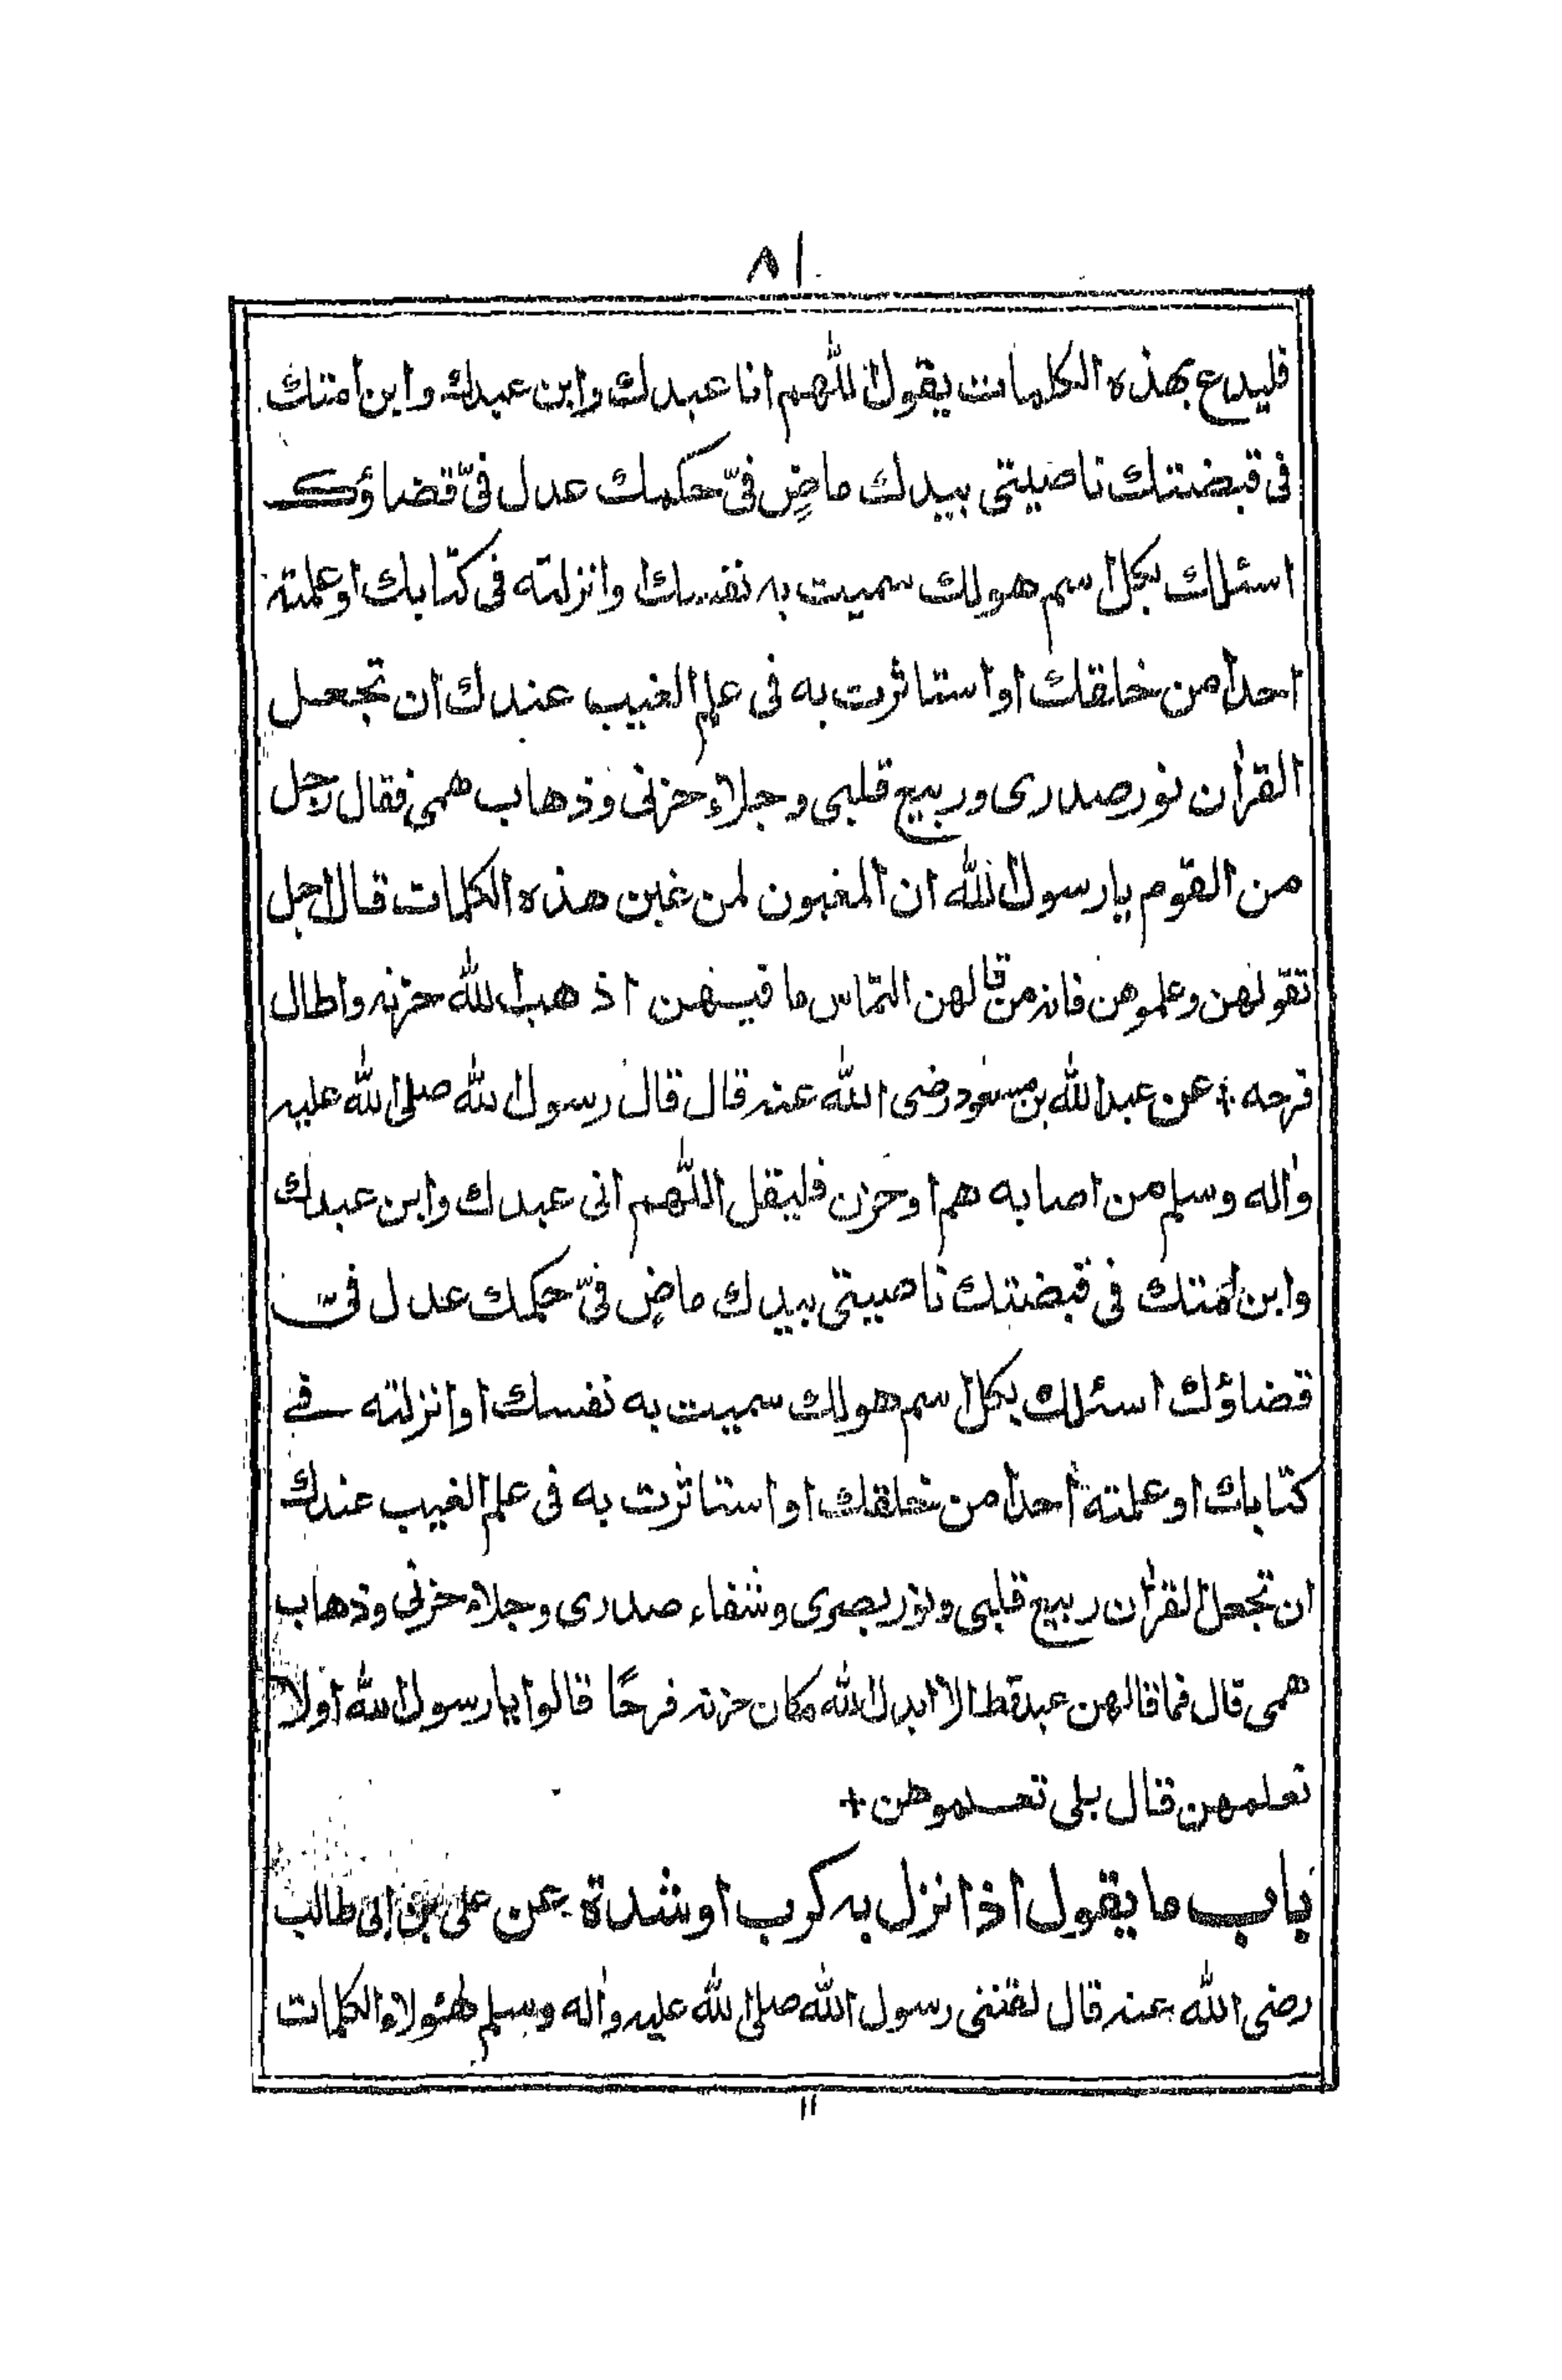 ٨١
فليدع بهذه الكلمات يقول اللهم انا عبدك وابن عبدك وابن امتك
فى قبضتك ناصيتى بيدك ماضٍ فىّ حكمك عدل فىّ قضاؤك
اسئلك بكل اسم هو لك سميت به نفسك وانزلته فى كتابك اوعلمته
احدا من خلقك او استاثرت به فى علم الغيب عندك ان تجعل
القرأن نور صدرى وربيع قلبى وجلاء حزنى وذهاب همى فقال رجل
من القوم يا رسول الله ان المغبون لمن غبن هذه الكلمات قال اجل
تقولهن وعلموهن فانه من قالهن التماس ما فيهن اذهب الله حزنه واطال
فرحه + عن عبد الله بن مسعود رضى الله عنه قال قال رسول الله صلى الله عليه
وأله وسلم من اصابه هم او حزن فليقل اللهم انى عبدك وابن عبدك
وابن امتك فى قبضتك ناصيتى بيدك ماضٍ فىّ حكمك عدل فىّ
قضاؤك اسئلك بكل اسم هو لك سميت به نفسك او انزلته فى
كتابك او علمته احدا من خلقك او استاثرت به فى علم الغيب عندك
ان تجعل القرأن ربيع قلبى ونور بصرى وشفاء صدرى وجلاء حزنى وذهاب
همى قال فما قالهن عبد قط الا ابدل الله مكان حزنه فرحًا قالوا يا رسول الله اولا
نعلمهن قال بلى تعلموهن +
باب ما يقول اذا نزل به كرب او شدة عن على بن ابى طالب
رضى الله عنه قال لقننى رسول الله صلى الله عليه وأله وسلم هئولاء الكلمات
١١